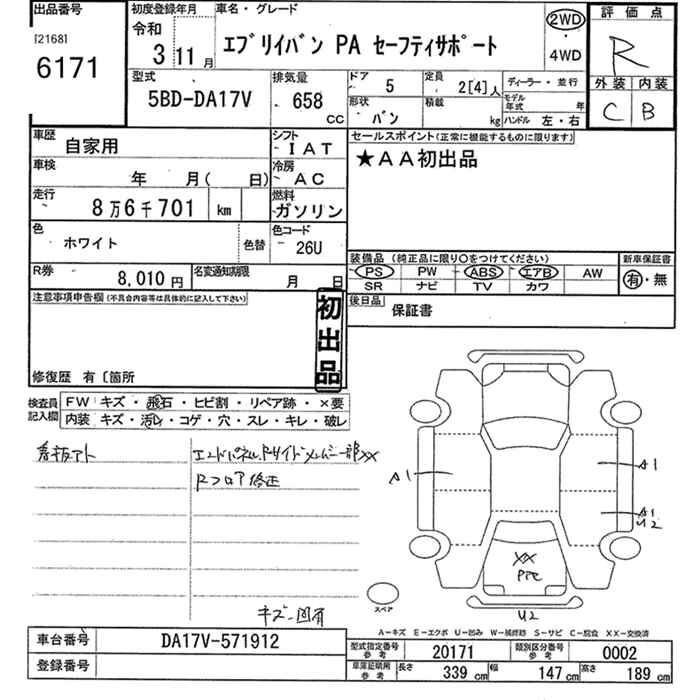 出品番号
[2168]
6171
初度登録年月
令和
3 11月
車名・グレード
エブリイバン PA セーフティサポート
2WD
・
4WD
評価点
R
外装 内装
C B
型式
5BD-DA17V
排気量
658
CC
ドア 5
形状 バン
定員 2[4]人
積載 kg
ディーラー・並行
モデル年式 年
ハンドル 左・右
車歴 自家用
シフト IAT
車検 年 月( 日)
冷房 AC
走行 8万6千701 km
燃料 ガソリン
色 ホワイト
色替
色コード 26U
R券 8,010円
名変通知期限 月 日
セールスポイント(正常に機能するものに限ります)
★AA初出品
装備品(純正品に限り○をつけてください)
PS PW ABS エアB AW
SR ナビ TV カワ
新車保証書
有・無
後日品 保証書
注意事項申告欄(不具合内容等は具体的に記入して下さい)
初出品
修復歴 有〔箇所
検査員記入欄
FW キズ・飛石・ヒビ割・リペア跡・×要
内装 キズ・汚レ・コゲ・穴・スレ・キレ・破レ
看板アト
エンドパネル、Rサイドメンバー一部XX
Rフロア修正
キズ凹有
A1
A1
A1
U2
XX
U2
スペア
A-キズ E-エクボ U-凹み W-補修跡 S-サビ C-腐食 XX-交換済
車台番号 DA17V-571912
登録番号
型式指定番号参考 20171
類別区分番号参考 0002
車庫証明用参考 長さ 339cm 幅 147cm 高さ 189cm